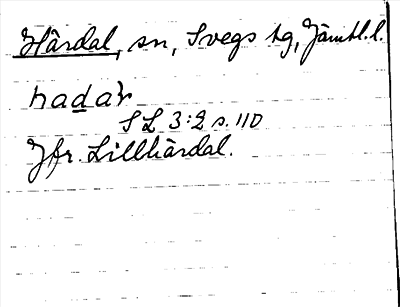 Härdal, sn, Svegs tg, Jämtl. l.
hadàr
SL 3:2 s. 110
Jfr. Lillhärdal.